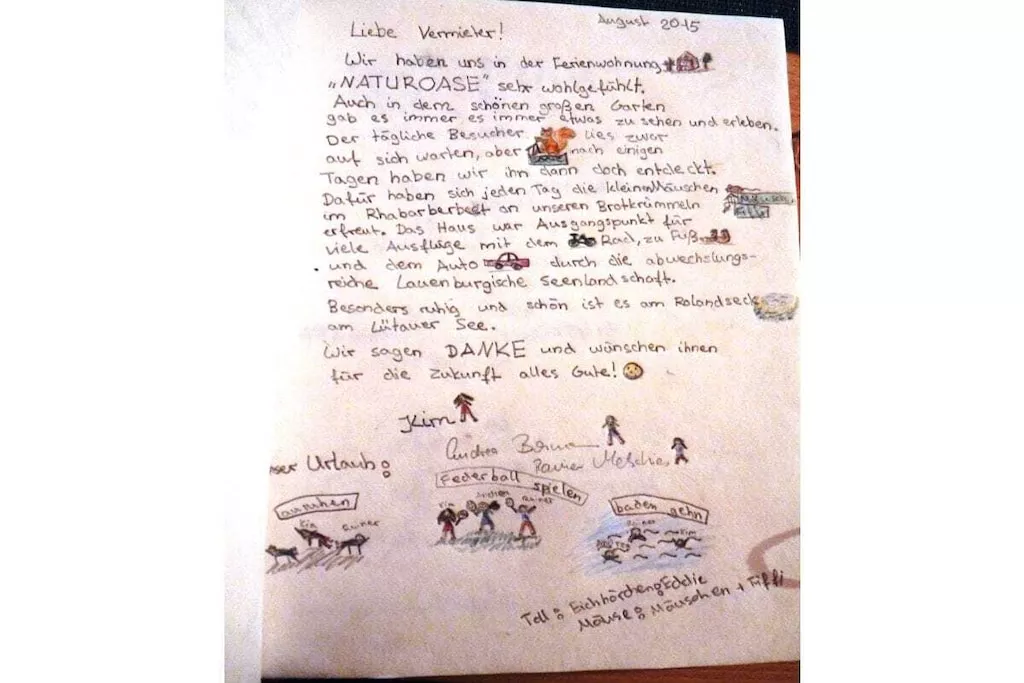 August 2015
Liebe Vermieter!
Wir haben uns in der Ferienwohnung
"NATUROASE" sehr wohlgefühlt.
Auch in dem schönen großen Garten
gab es immer es immer etwas zu sehen und erleben.
Der tägliche Besucher lies zwar
auf sich warten, aber nach einigen
Tagen haben wir ihn dann doch entdeckt.
Dafür haben sich jeden Tag die kleinen Mäuschen
im Rhabarberbeet an unseren Brotkrümmeln
erfreut. Das Haus war Ausgangspunkt für
viele Ausflüge mit dem Rad, zu Fuß
und dem Auto durch die abwechslungs-
reiche Lauenburgische Seenlandschaft.
Besonders ruhig und schön ist es am Rolandseck
am Lütauer See.
Wir sagen DANKE und wünschen ihnen
für die Zukunft alles Gute!
Kim
Andrea
Rainer
ser Urlaub:
ausruhen
Kim Rainer
Federball spielen
Kim Andrea Rainer
baden gehn
Rainer
Andrea Kim
Toll: Eichhörnchen Eddie
Mäuse: Mäuschen + Fiffi